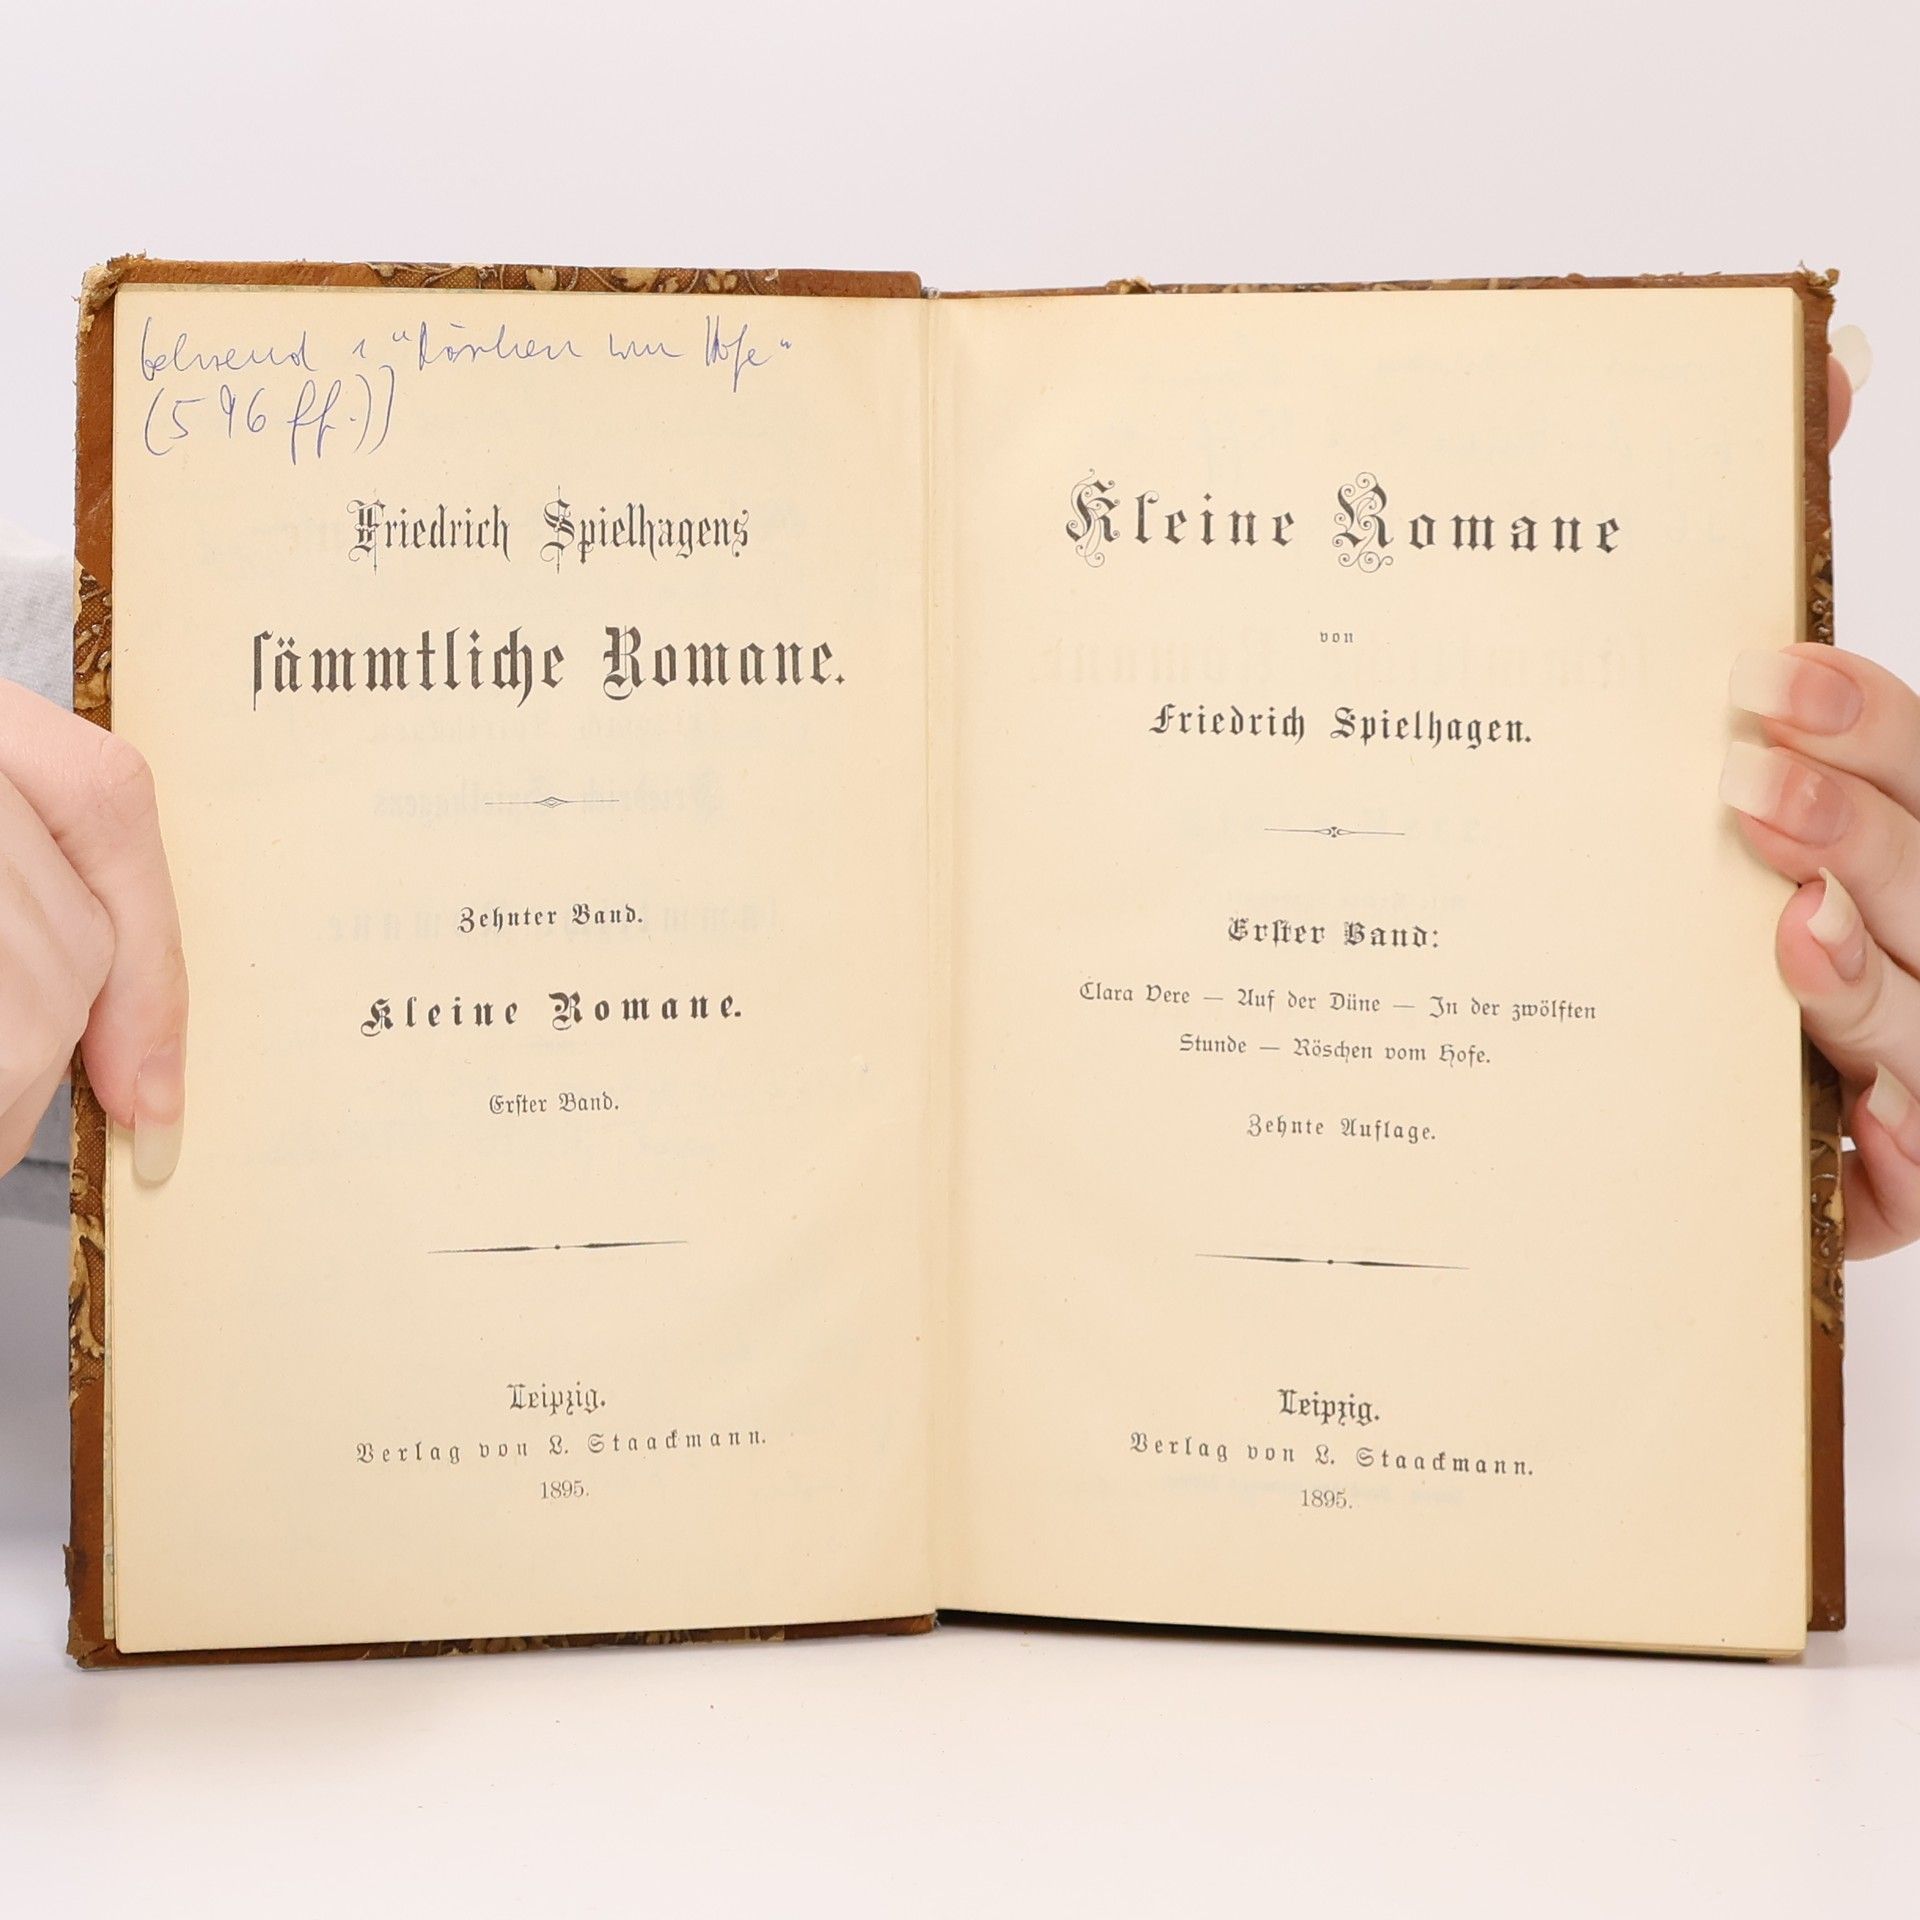 "Röschen vom Hofe"
(596 ff.)
Friedrich Spielhagens
sämmtliche Romane.
Zehnter Band.
Kleine Romane.
Erster Band.
Leipzig.
Verlag von L. Staackmann.
1895.
Kleine Romane
von
Friedrich Spielhagen.
Erster Band:
Clara Vere — Auf der Düne — In der zwölften
Stunde — Röschen vom Hofe.
Zehnte Auflage.
Leipzig.
Verlag von L. Staackmann.
1895.